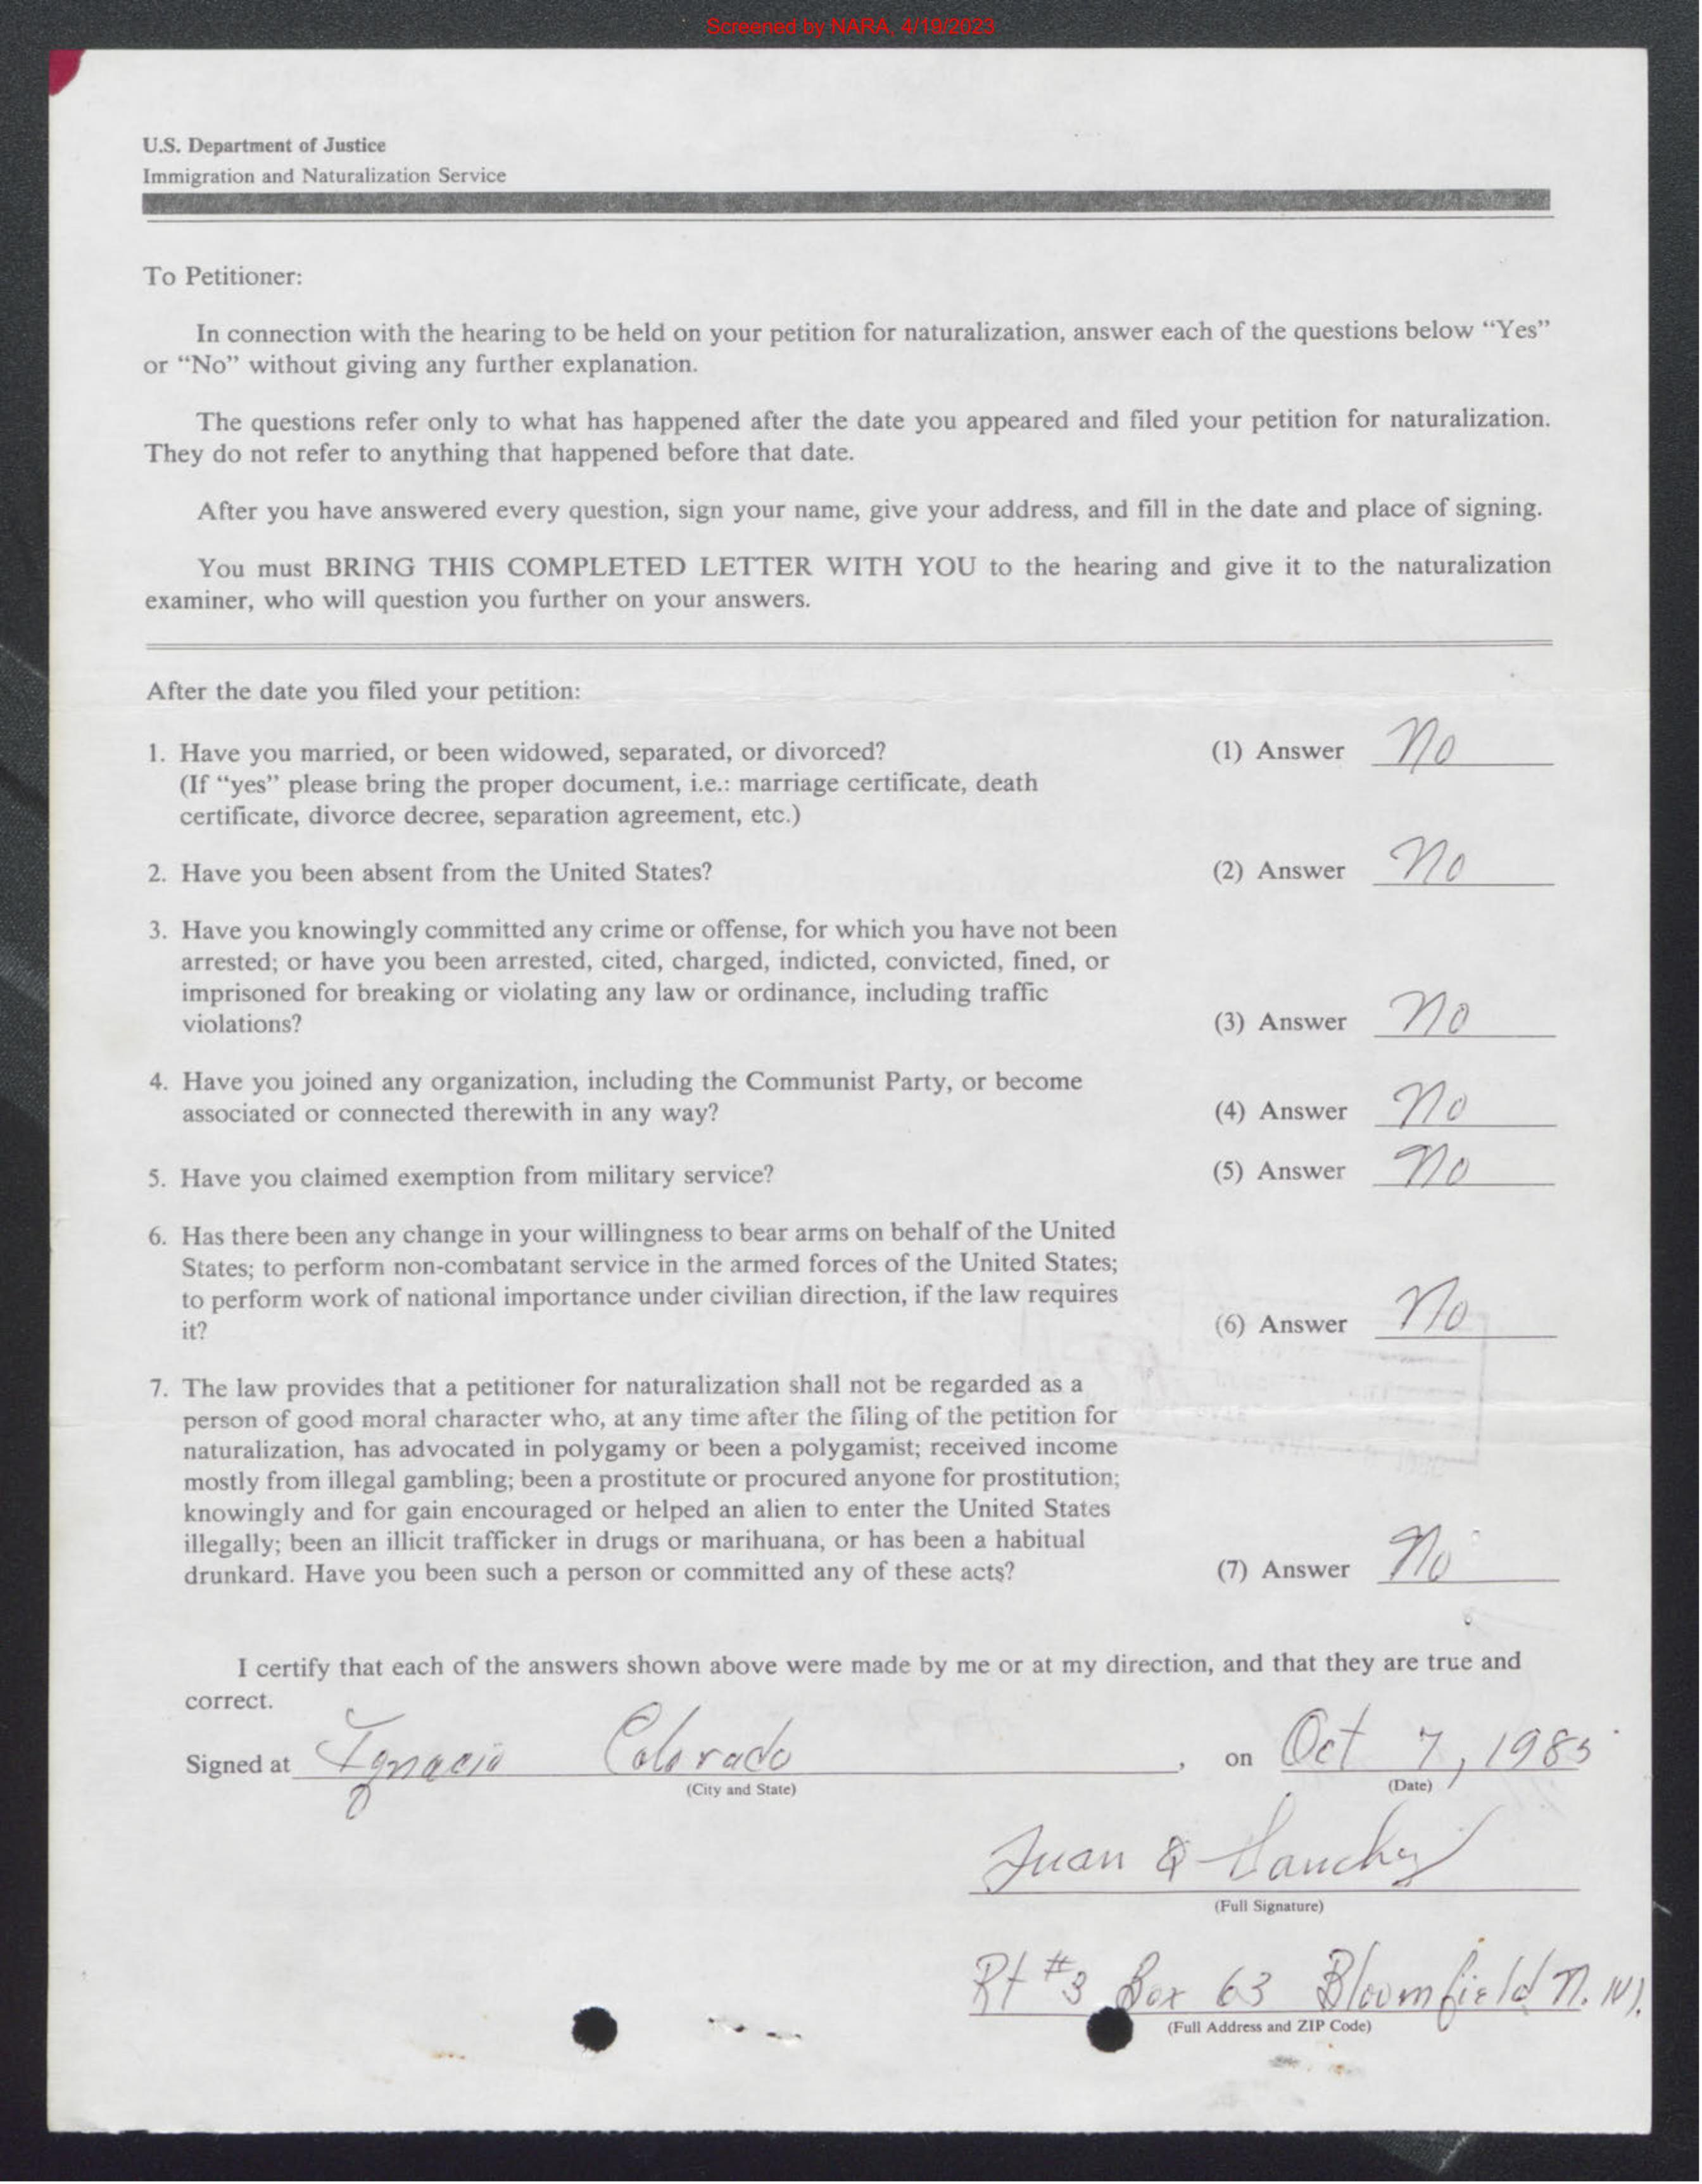 Screened by NARA, 4/19/2023
U.S. Department of Justice
Immigration and Naturalization Service
To Petitioner:
In connection with the hearing to be held on your petition for naturalization, answer each of the questions below “Yes”
or “No” without giving any further explanation.
The questions refer only to what has happened after the date you appeared and filed your petition for naturalization.
They do not refer to anything that happened before that date.
After you have answered every question, sign your name, give your address, and fill in the date and place of signing.
You must BRING THIS COMPLETED LETTER WITH YOU to the hearing and give it to the naturalization
examiner, who will question you further on your answers.
After the date you filed your petition:
1. Have you married, or been widowed, separated, or divorced? (1) Answer No
(If “yes” please bring the proper document, i.e.: marriage certificate, death
certificate, divorce decree, separation agreement, etc.)
2. Have you been absent from the United States? (2) Answer No
3. Have you knowingly committed any crime or offense, for which you have not been
arrested; or have you been arrested, cited, charged, indicted, convicted, fined, or
imprisoned for breaking or violating any law or ordinance, including traffic
violations? (3) Answer No
4. Have you joined any organization, including the Communist Party, or become
associated or connected therewith in any way? (4) Answer No
5. Have you claimed exemption from military service? (5) Answer No
6. Has there been any change in your willingness to bear arms on behalf of the United
States; to perform non-combatant service in the armed forces of the United States;
to perform work of national importance under civilian direction, if the law requires
it? (6) Answer No
7. The law provides that a petitioner for naturalization shall not be regarded as a
person of good moral character who, at any time after the filing of the petition for
naturalization, has advocated in polygamy or been a polygamist; received income
mostly from illegal gambling; been a prostitute or procured anyone for prostitution;
knowingly and for gain encouraged or helped an alien to enter the United States
illegally; been an illicit trafficker in drugs or marihuana, or has been a habitual
drunkard. Have you been such a person or committed any of these acts? (7) Answer No
I certify that each of the answers shown above were made by me or at my direction, and that they are true and
correct.
Signed at Ignacio Colorado, on Oct 7, 1985
(City and State) (Date)
Juan Q Sanchez
(Full Signature)
Rt #3 Box 63 Bloomfield N.M.
(Full Address and ZIP Code)